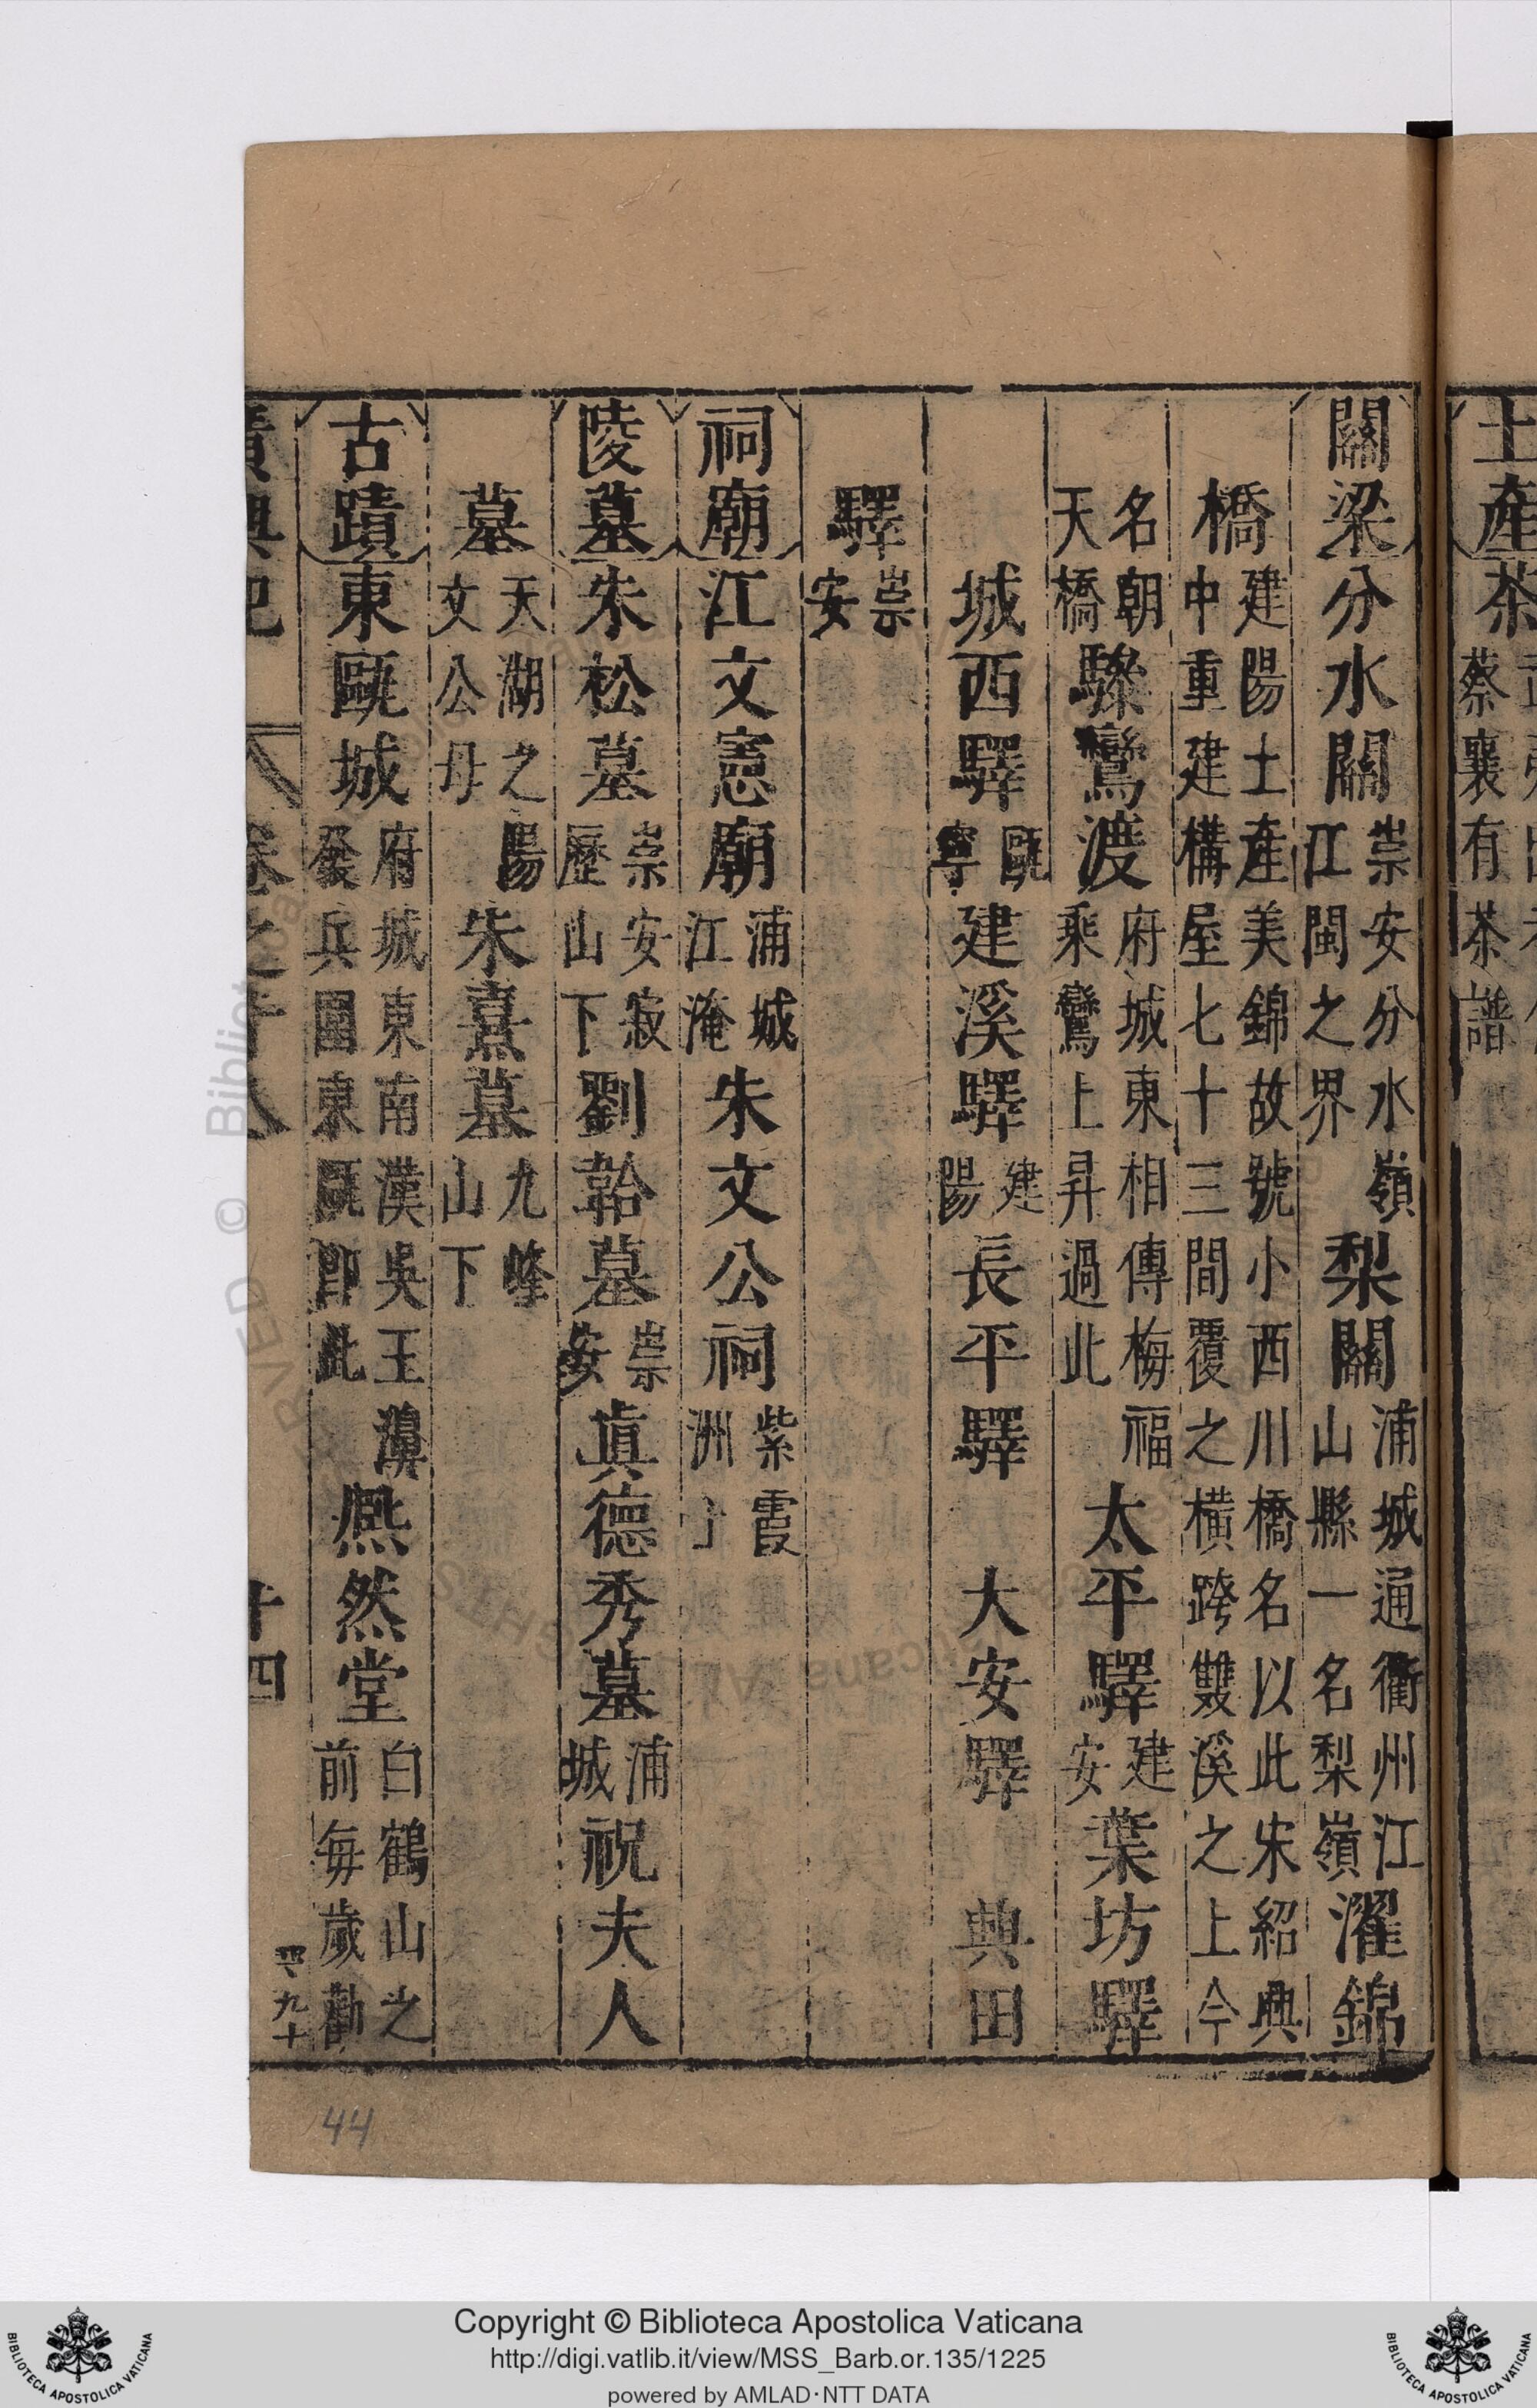 關梁分水關崇安分水嶺江閩之界梨關浦城通衢州江山縣一名梨嶺濯錦
橋建陽土產美錦故號小西川橋名以此宋紹興中重建構屋七十三間覆之橫跨雙溪之上今
名朝天橋驂鸞渡府城東相傳梅福乘鸞上昇過此太平驛建安葉坊驛
城西驛甌寧建溪驛建陽長平驛大安驛典田
驛崇安
祠廟江文憲廟浦城江淹朱文公祠紫霞洲
陵墓朱松墓崇安寂歷山下劉韐墓崇安真德秀墓浦城祝夫人
墓天湖之陽文公母朱熹墓九峰山下
古蹟東甌城府城東南漢吳王濞發兵圍東甌即此熈然堂白鶴山之前每歲勸
卷之十八
十四
土產茶
蔡襄有茶譜
44
Copyright © Biblioteca Apostolica Vaticana
http://digi.vatlib.it/view/MSS_Barb.or.135/1225
powered by AMLAD·NTT DATA
BIBLIOTECA APOSTOLICA VATICANA
BIBLIOTECA APOSTOLICA VATICANA